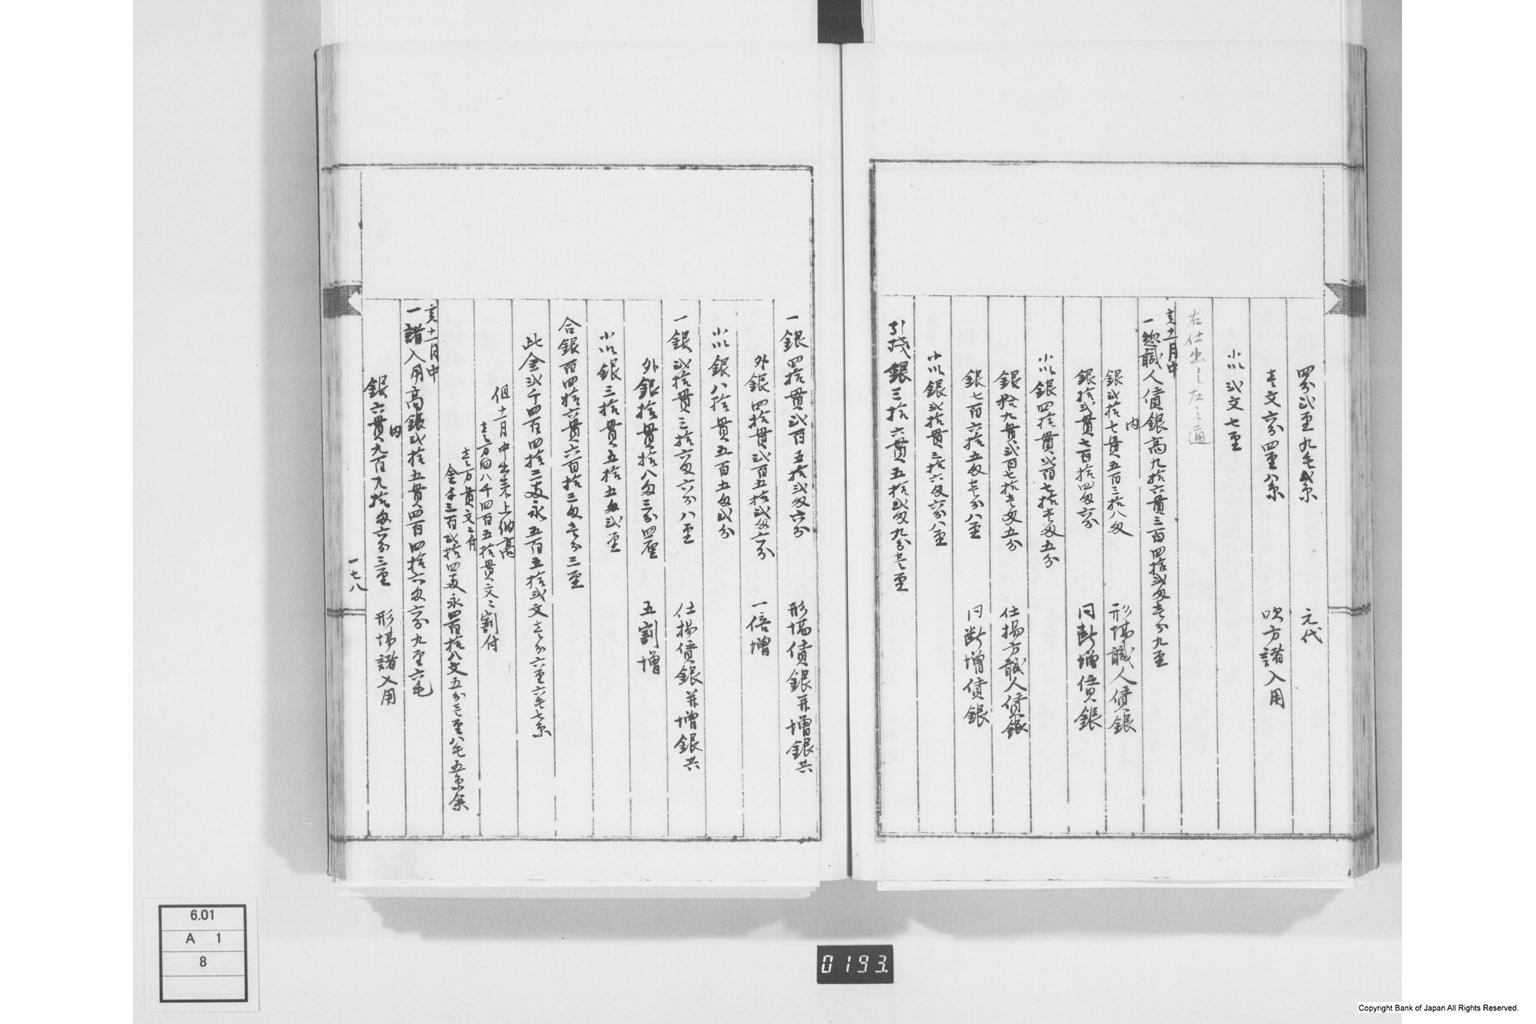 四分弐厘九毛弐糸 元代
壱文六分四厘八糸 吹方諸入用
小以弐文七厘
右仕出し左之通
亥十一月中
一惣職人債銀高九拾六貫三百四拾弐匁壱分九厘
内
銀弐拾七貫五百三拾八匁 形場職人債銀
銀拾弐貫七百拾四匁六分 同断増債銀
小以銀四拾貫弐百七拾壱匁五分
銀拾九貫弐百七拾壱匁五分 仕揚方職人債銀
銀七百六拾五匁壱分八厘 同断増債銀
小以銀弐拾貫三拾六匁六分八厘
引残銀三拾六貫五拾弐匁九分壱厘
一銀四拾貫弐百五拾弐匁六分 形場債銀并増銀共
外銀四拾貫弐百五拾弐匁六分 一倍増
小以銀八拾貫五百五匁弐分
一銀弐拾貫三拾六匁六分八厘 仕揚債銀并増銀共
外銀拾貫拾八匁三分四厘 五割増
小以銀三拾貫五拾五匁弐厘
合銀百四拾六貫六百拾三匁壱分三厘
此金弐千四百四拾三両永五百五拾弐文壱分六厘六毛七糸
但十一月中出来上納高
壱万四八千四百五拾貫文之割付
壱万貫文ニ付
金千三百弐拾四両永四百拾八文五分七厘八毛五糸余
亥十一月中
一諸入用高銀弐拾五貫四百四拾六匁六分九厘六毛
内
銀六貫九百九拾匁六分三厘 形場諸入用
一七八
6.01
A 1
8
0193.
Copyright Bank of Japan All Rights Reserved.